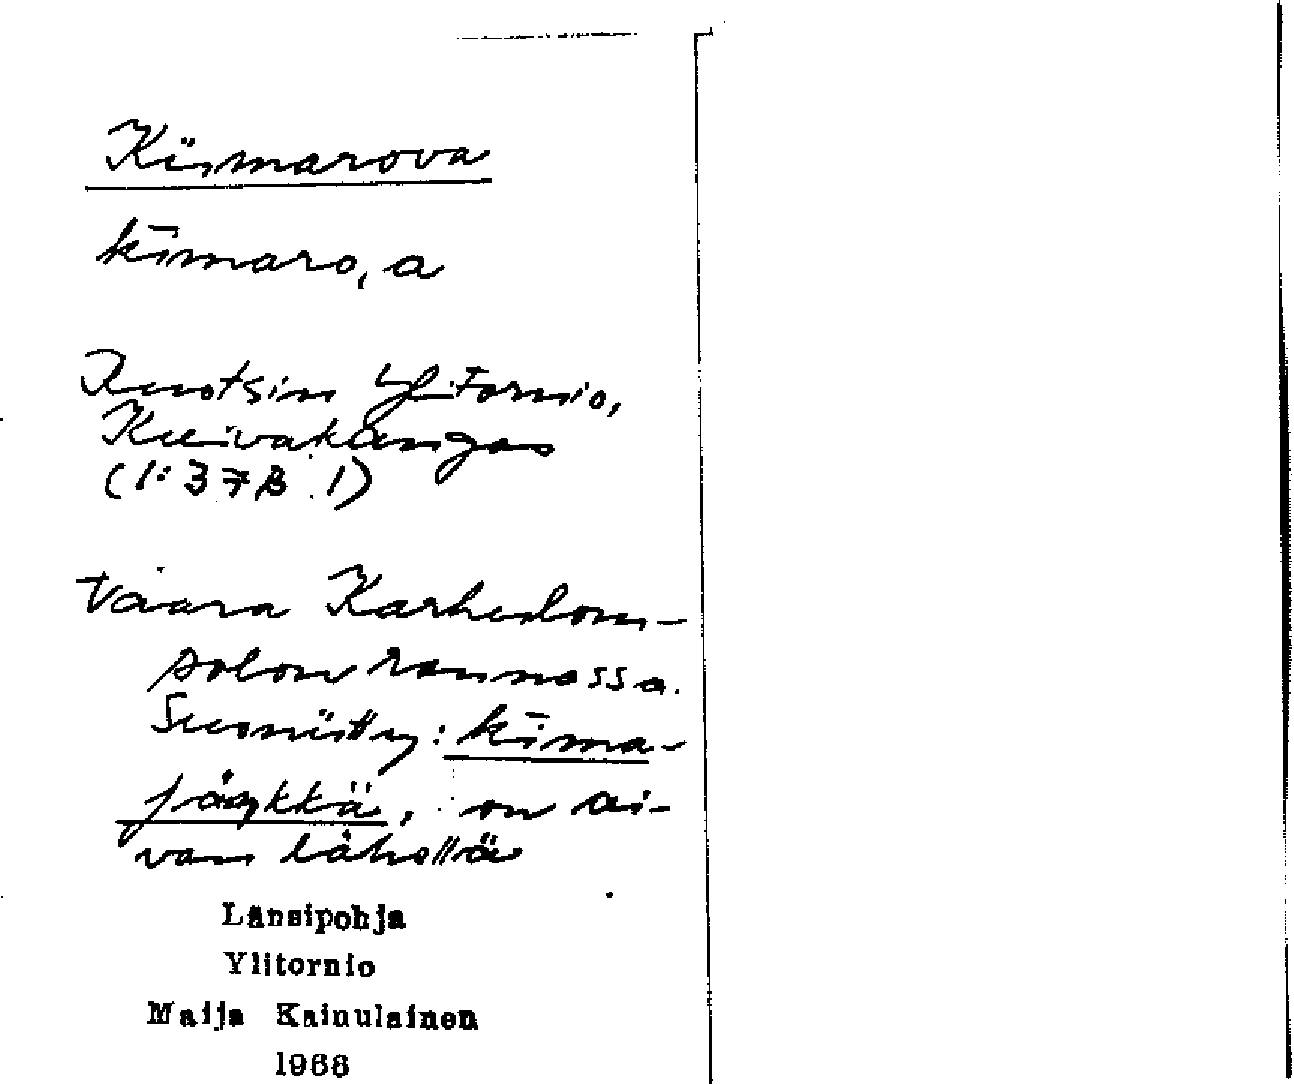 Kiimarova
kīmaro, a
Ruotsin Ylitornio,
Kuivakangas
(1:37B 1)
Vaara Karhulom-
polon rannassa.
Suomiittu: kīma-
jäykkä, on ai-
van lähellä
Länsipohja
Ylitornio
Maija Kainulainen
1966